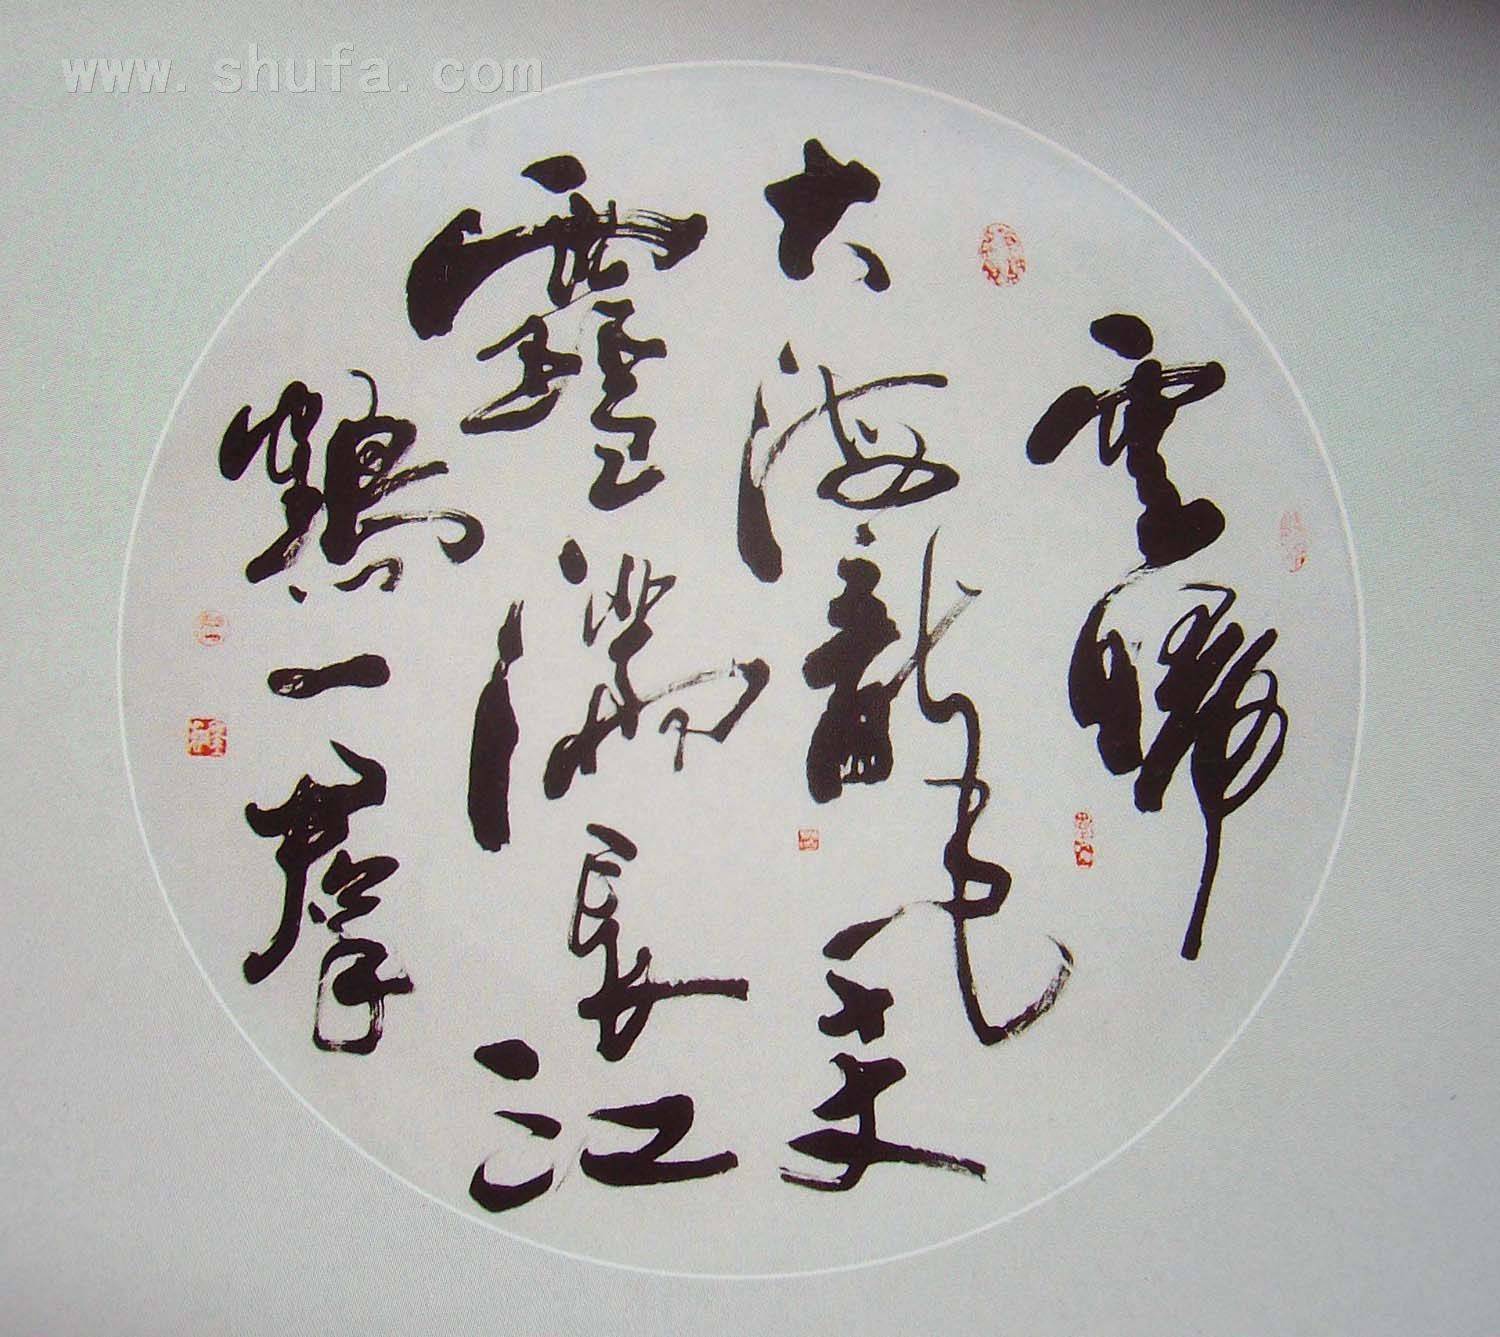 www.shufa.com
雲歸
大海龍千丈
雪滿長江
鶴一羣